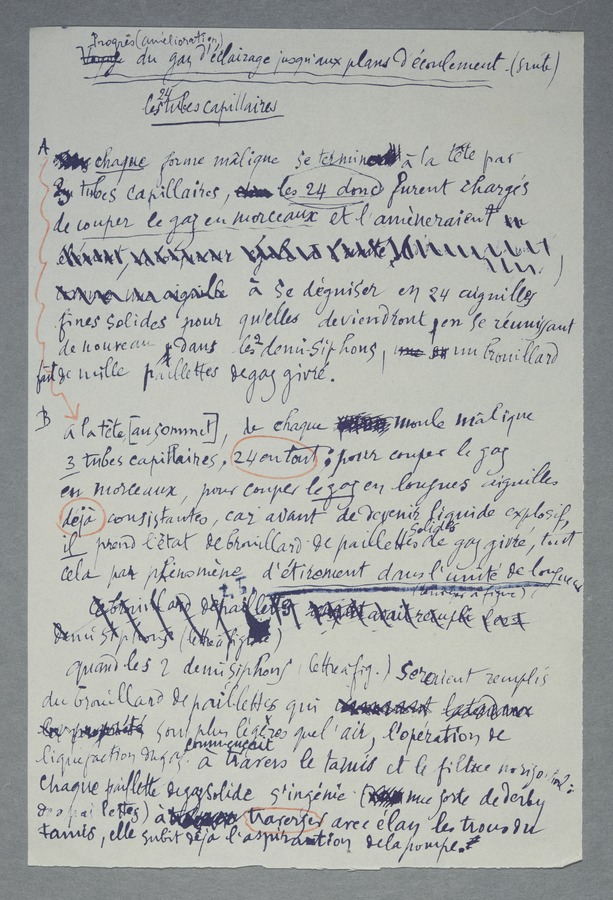 Progrès (amélioration)
du gaz d'éclairage jusqu'aux plans d'écoulement (suite)
24
les tubes capillaires
A
chaque forme mâlique se termine à la tête par
3 tubes capillaires, les 24 donc furent chargés
de couper le gaz en morceaux et l'amèneraient
à se déguiser en 24 aiguilles
fines solides pour qu'elles deviendront, en se réunissant
de nouveau dans les 2 demi-siphons, un brouillard
fait de mille paillettes de gaz givré.
B
à la tête [au sommet], de chaque moule mâlique
3 tubes capillaires, 24 en tout; pour couper le gaz
en morceaux, pour couper le gaz en longues aiguilles
déjà consistantes, car avant de devenir liquide explosif,
il prend l'état de brouillard de paillettes solides de gaz givré, tout
cela par phénomène d'étirement dans l'unité de longueur
(lettre à fig.)
Ce brouillard de paillettes
demi siphons (lettre à fig.)
quand les 2 demi siphons (lettre à fig.) seraient remplis
du brouillard de paillettes qui
sont plus légères que l'air, l'opération de
liquéfaction du gaz commençait à travers le tamis et le filtre
Chaque paillette de gaz solide s'ingénie (une sorte de derby
de paillettes) à traverser avec élan les trous du
tamis, elle subit déjà l'aspiration de la pompe.